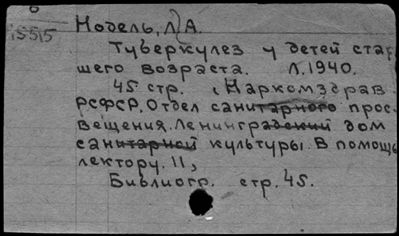 15515
Нодель, Л А.
Туберкулез у детей стар
шего возраста. Л. 1940.
45 стр. (Наркомздрав
РСФСР. Отдел санитарного прос
вещения. Ленинградский дом
санитарной культуры. В помощь
лектору. 11,
Библиогр. стр. 45.